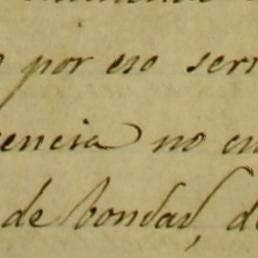 por eso ser
encia no en
de bondad, de